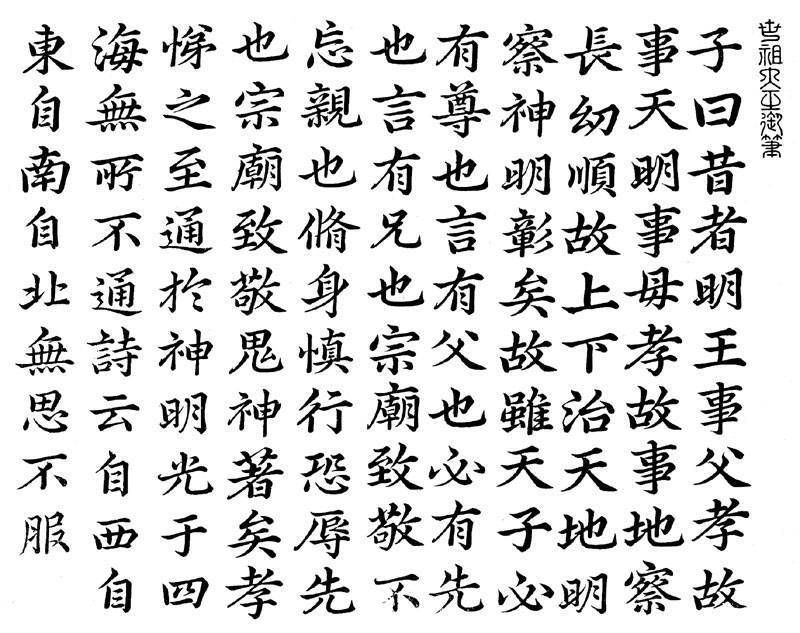 世祖大王御筆
子曰昔者明王事父孝故
事天明事母孝故事地察
長幼順故上下治天地明
察神明彰矣故雖天子必
有尊也言有父也必有先
也言有兄也宗廟致敬不
忘親也脩身慎行恐辱先
也宗廟致敬鬼神著矣孝
悌之至通於神明光于四
海無所不通詩云自西自
東自南自北無思不服